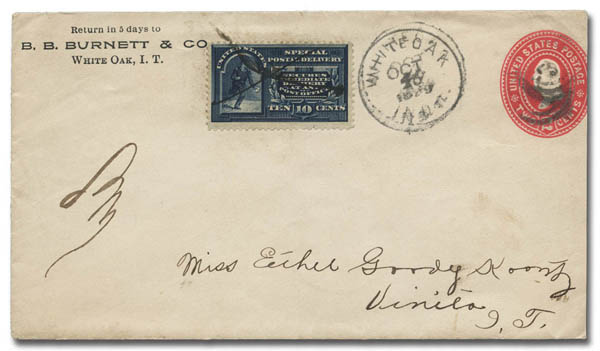 Return in 5 days to
B. B. BURNETT & CO
WHITE OAK, I. T.
UNITED STATES
SPECIAL
POSTAL DELIVERY
SECURES
IMMEDIATE
DELIVERY
AT AN
POST OFFICE
TEN 10 CENTS
WHITEOAK
OCT
IND. T.
UNITED STATES POSTAGE
TWO CENTS
Miss Ethel Goody Koontz
Vinita
I. T.